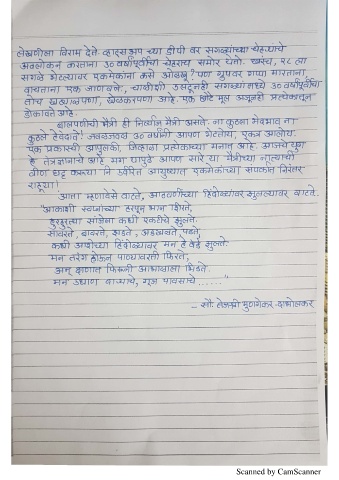 लेखणीला विराम देते. व्हाट्सअप च्या डीपी वर सगळ्यांच्या चेहऱ्याचे
अवलोकन करताना ३० वर्षापूर्वीचा चेहराच समोर येतो. खरंच, २८ ला
सगळे भेटल्यावर एकमेकांना कसे ओळखू? पण ग्रुपवर गप्पा मारताना,
वाचताना एक जाणवले, चाळीशी उलटूनही सगळ्यांमध्ये ३० वर्षापूर्वीचा
तोच खट्याळपणा, खेळकरपणा आहे. एक छोटे मूल अजूनही प्रत्येकातून
डोकावते आहे.
बालपणीची मैत्री ही निर्व्याज मैत्री असते. ना कुठला भेदभाव ना
कुठले हेवेदावे! जवळजवळ ३० वर्षांनी आपण भेटतोय, एकत्र आलोय.
एक प्रकारची आपुलकी, जिव्हाळा प्रत्येकाच्या मनात आहे. आजचे युग
हे तंत्रज्ञानाचे आहे मग यापुढे आपण सारे या मैत्रीच्या नात्याची
वीण घट्ट करूया नि उर्वरित आयुष्यात एकमेकांच्या संपर्कात निरंतर
राहूया!
आता म्हणावेसे वाटते, आठवणींच्या हिंदोळ्यांवर झुलल्यावर वाटते.
"आकाशी स्वप्नांच्या हरपून भान शिरते,
हुरहुरत्या सांजेला कधी एकटेच झुलते.
सावरते, बावरते, झडते, अडखळते, पडते
कधी आशेच्या हिंदोळ्यावर मन हे वेडे झुलते.
मन तरंग होऊन पाण्यावरती फिरते,
अन् क्षणात फिरूनी आभाळाला भिडते.
मन उधाण वाऱ्याचे, गूज पावसाचे ......"
- सौ. तेजश्री मुणगेकर-दाभोलकर
Scanned by CamScanner